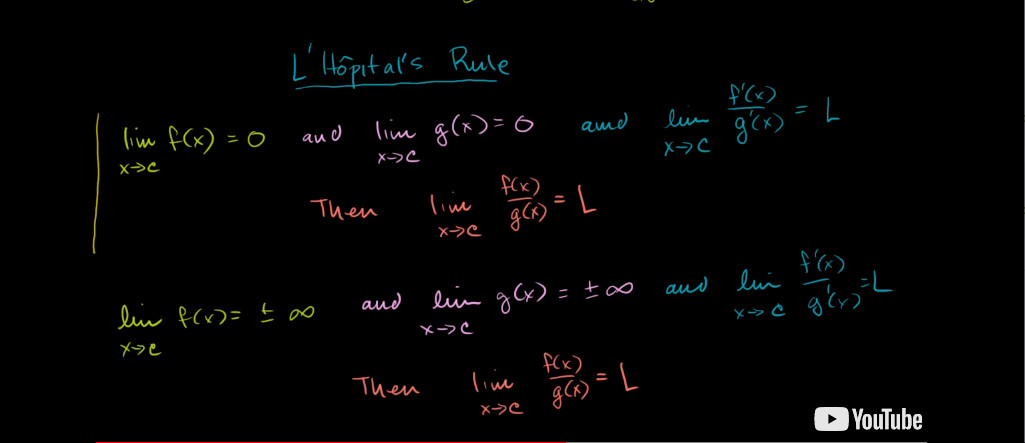 L'Hôpital's Rule
lim x→c f(x) = 0 and lim x→c g(x) = 0 and lim x→c f'(x)/g'(x) = L
Then lim x→c f(x)/g(x) = L
lim x→c f(x) = ± ∞ and lim x→c g(x) = ± ∞ and lim x→c f'(x)/g'(x) = L
Then lim x→c f(x)/g(x) = L
YouTube